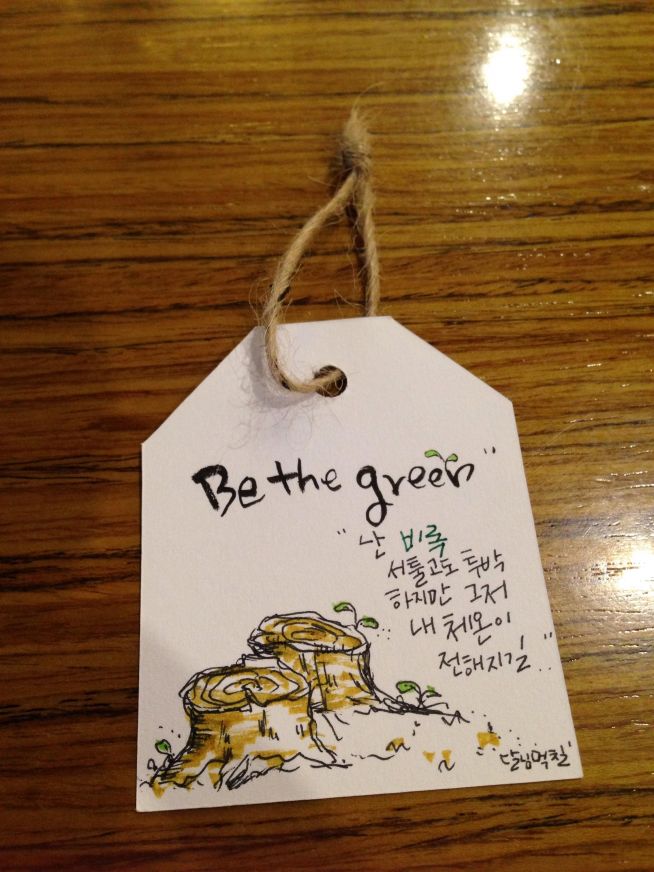 Be the green"
"난 비록
서툴고도 투박
하지만 그저
내 체온이
전해지길.."
달님먹칠